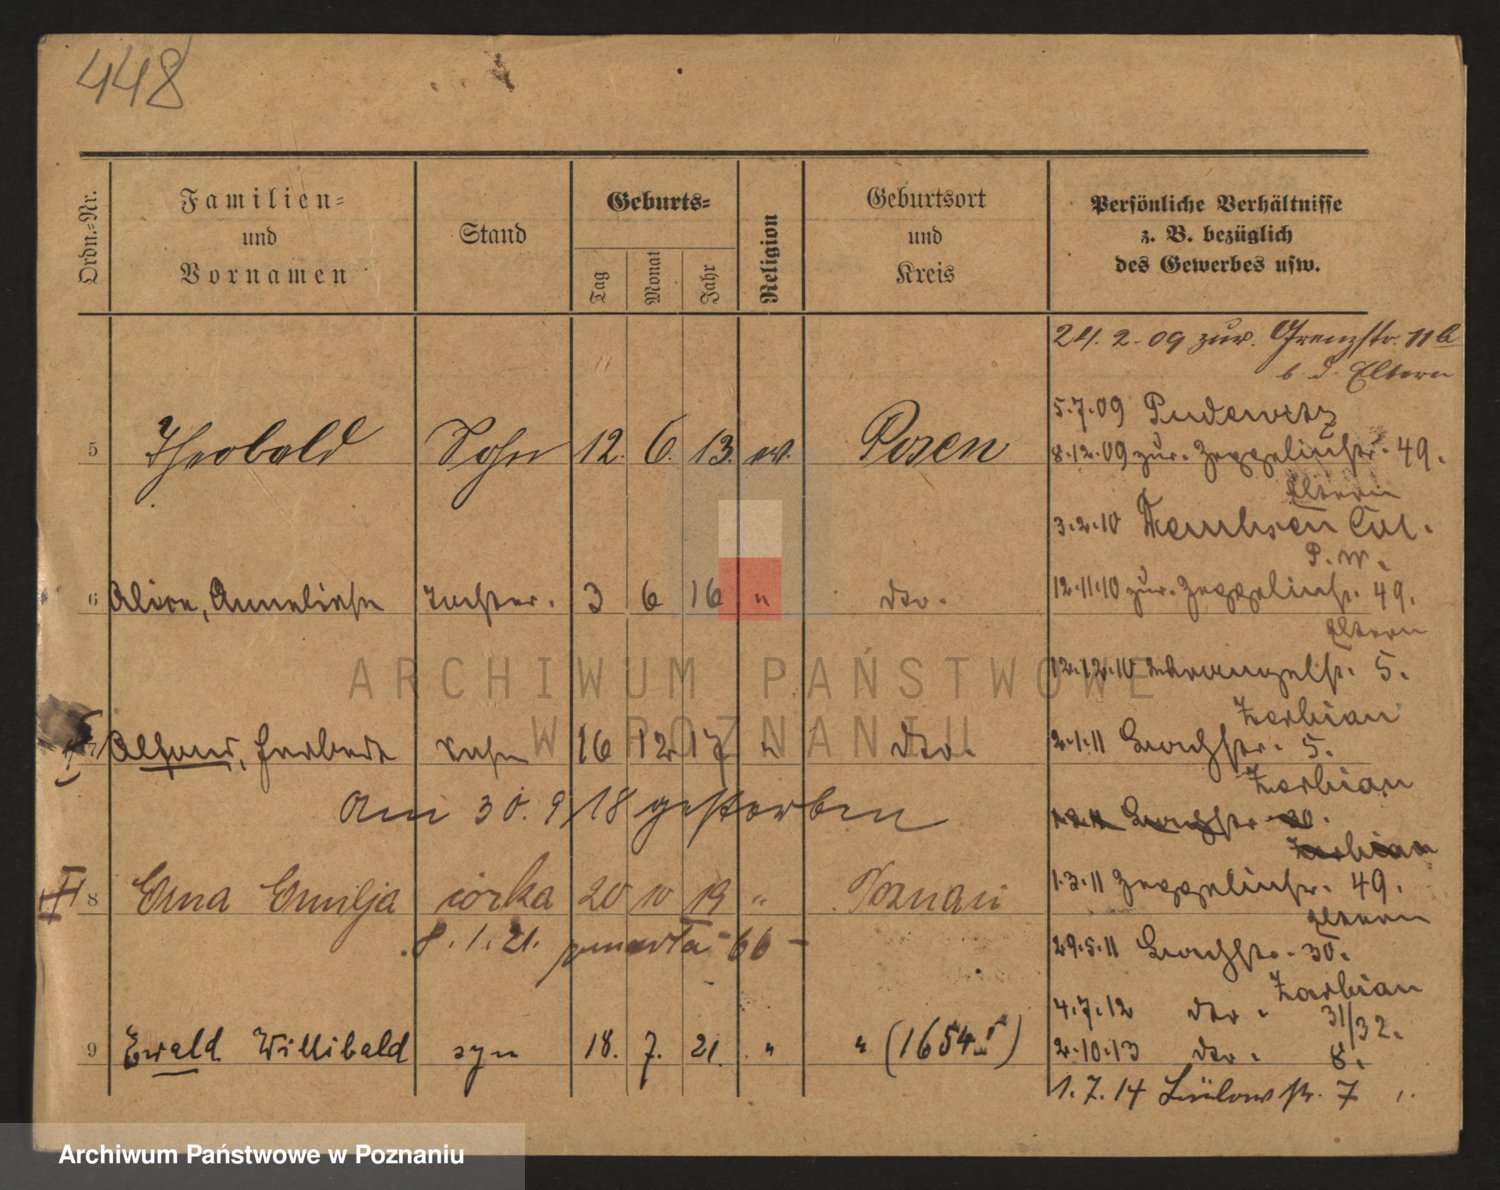 448
Ordn.-Nr.
Familien-
und
Vornamen
Stand
Geburts-
Tag
Monat
Jahr
Religion
Geburtsort
und
Kreis
Persönliche Verhältnisse
z. B. bezüglich
des Gewerbes usw.
24. 2. 09 zur. Grenzstr. 11b
b. d. Eltern
5.7.09 Pudewitz
5 Theobald Sohn 12. 6. 13. ev. Posen
8.12.09 zur. Zeppelinstr. 49.
Eltern
3.2.10
P. W.
6 Alice, Anneliese Tochter. 3 6 16 " dto.
12.11.10 zur. Zeppelinstr. 49.
Eltern
12.12.10 Wrangelstr. 5.
Zerbian
7 Alfons, Herbert Sohn 16 12 17 " dto.
2.1.11 Bachstr. 5.
Zerbian
Am 30. 9 18 gestorben
Bachstr. 30.
Zerbian
II 8 Erna Emilja córka 20 10 19 " Poznań
1.3.11 Zeppelinstr. 49.
Eltern
8. 1. 21. zmarła 66
29.5.11 Bachstr. 30.
Zerbian
4.7.12 dto. 31/32.
9 Ewald Willibald syn 18. 7. 21. " " (1654
2.10.13 dto. 8.
1.7.14 Bülowstr. 7
ARCHIWUM PAŃSTWOWE
W POZNANIU
Archiwum Państwowe w Poznaniu